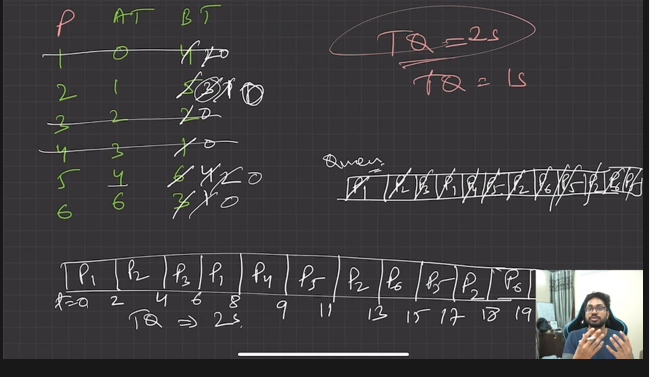 P AT BT
1 0 4 2 0
2 1 5 3 1 0
3 2 2 0
4 3 1 0
5 4 6 4 2 0
6 6 3 1 0
TQ = 2s
TQ = 1s
Queue:
P1 P2 P3 P1 P4 P5 P2 P6 P5 P2 P6 P5
P1 P2 P3 P1 P4 P5 P2 P6 P5 P2 P6
t=0 2 4 6 8 9 11 13 15 17 18 19
TQ ⇒ 2s.